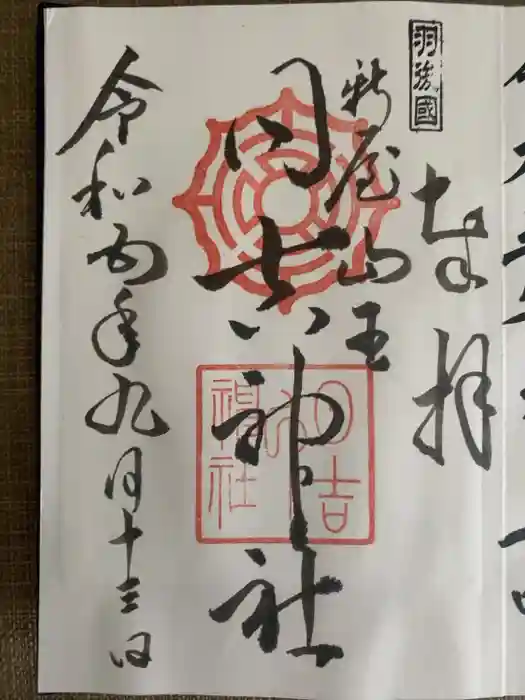 羽後國
奉拝
新屋山王
日吉神社
日吉
神社
令和五年九月十三日